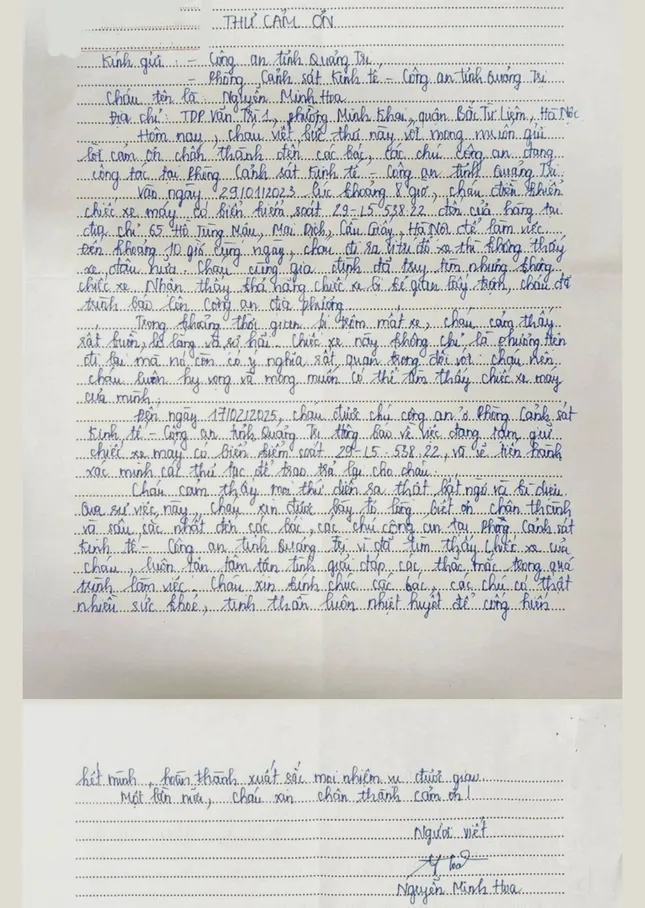 THƯ CẢM ƠN
Kính gửi : - Công an tỉnh Quảng Trị,
- Phòng Cảnh sát Kinh tế - Công an tỉnh Quảng Trị
Cháu tên là Nguyễn Minh Hoa
Địa chỉ: TDP Văn Trì 1, phường Minh Khai, quận Bắc Từ Liêm, Hà Nội
Hôm nay, cháu viết bức thư này với mong muốn gửi
lời cảm ơn chân thành đến các bác, các chú công an đang
công tác tại Phòng Cảnh sát Kinh tế - Công an tỉnh Quảng Trị.
Vào ngày 29/01/2023 lúc khoảng 8 giờ, cháu điều khiển
chiếc xe máy có biển kiểm soát 29-L5-538.22 đến cửa hàng tại
địa chỉ 65 Hồ Tùng Mậu, Mai Dịch, Cầu Giấy, Hà Nội để làm việc
Đến khoảng 10 giờ cùng ngày, cháu đi ra vị trí đỗ xe thì không thấy
xe đâu nữa. Cháu cùng gia đình đã truy tìm nhưng không
chiếc xe. Nhận thấy khả năng chiếc xe bị kẻ gian lấy trộm, cháu đã
trình báo lên Công an địa phương.
Trong khoảng thời gian bị trộm mất xe, cháu cảm thấy
rất buồn, lo lắng và sợ hãi. Chiếc xe này không chỉ là phương tiện
đi lại mà nó còn có ý nghĩa rất quan trọng đối với cháu nên
cháu luôn hy vọng và mong muốn có thể tìm thấy chiếc xe máy
của mình.
Đến ngày 17/02/2025, cháu được chú công an ở Phòng Cảnh sát
Kinh tế - Công an tỉnh Quảng Trị thông báo về việc đang tạm giữ
chiếc xe máy có biển kiểm soát 29-L5-538.22, và sẽ tiến hành
xác minh các thủ tục để trao trả lại cho cháu.
Cháu cảm thấy mọi thứ diễn ra thật bất ngờ và kì diệu
Qua sự việc này, cháu xin được bày tỏ lòng biết ơn chân thành
và sâu sắc nhất đến các bác, các chú công an tại Phòng Cảnh sát
Kinh tế - Công an tỉnh Quảng Trị vì đã tìm thấy chiếc xe của
cháu, luôn tận tâm tận tình giải đáp các thắc mắc trong quá
trình làm việc. Cháu xin kính chúc các bác, các chú có thật
nhiều sức khoẻ, tinh thần luôn nhiệt huyết để cống hiến
hết mình, hoàn thành xuất sắc mọi nhiệm vụ được giao.
Một lần nữa, cháu xin chân thành cảm ơn!
Người viết
Hoa
Nguyễn Minh Hoa